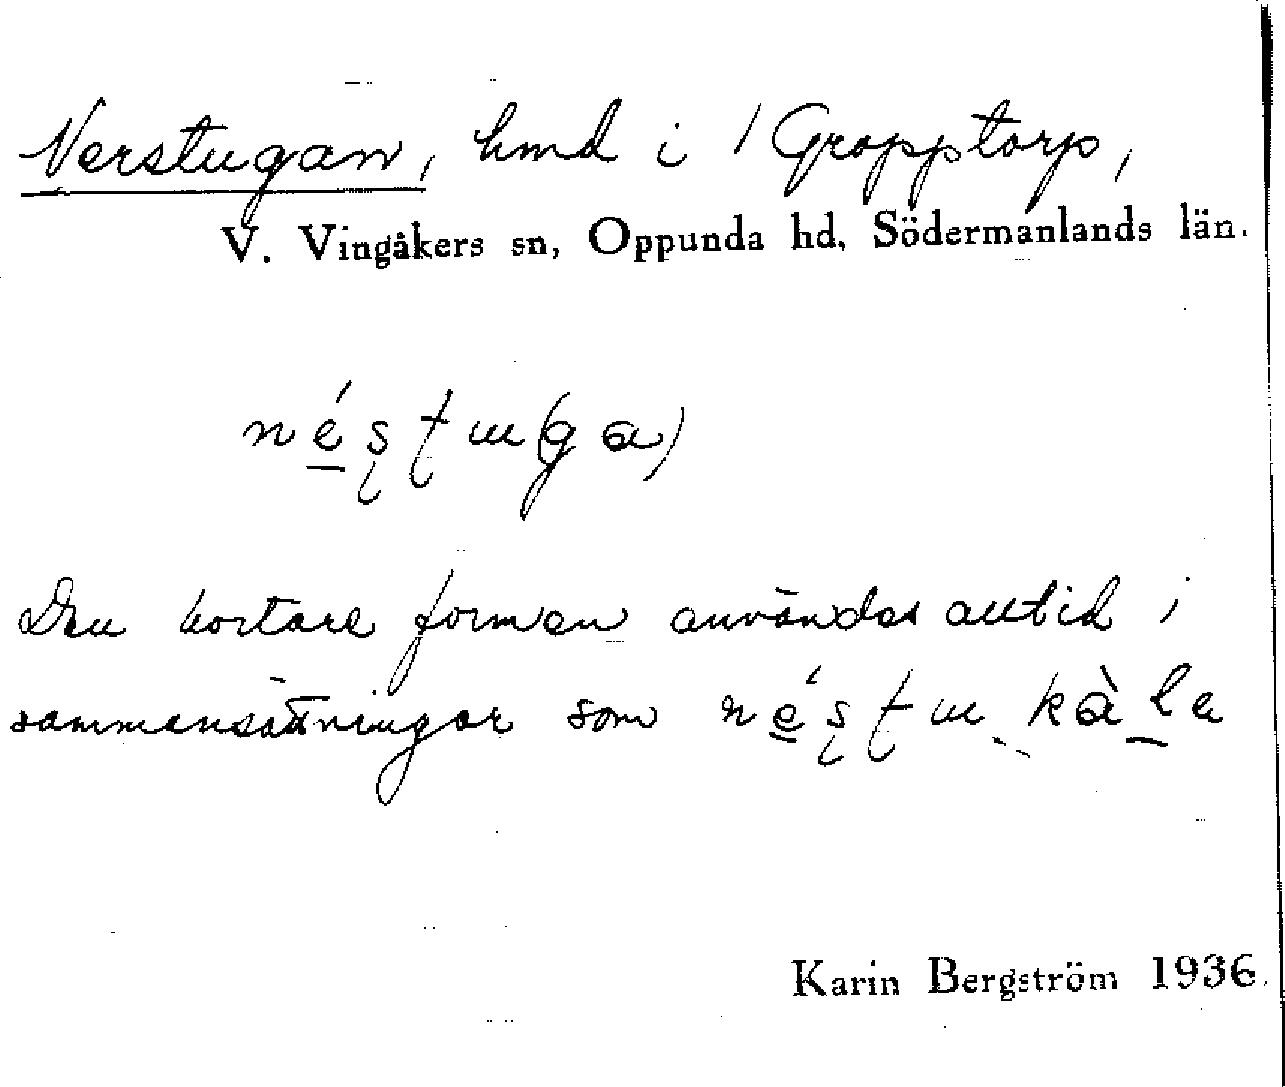 Nerstugan, hmd i 1 Gropptorp,
V. Vingåkers sn, Oppunda hd, Södermanlands län.
né̠ʂʈu(ga)
Den kortare formen användes alltid i
sammensättningar som né̠ʂʈu kà̠la
Karin Bergström 1936.